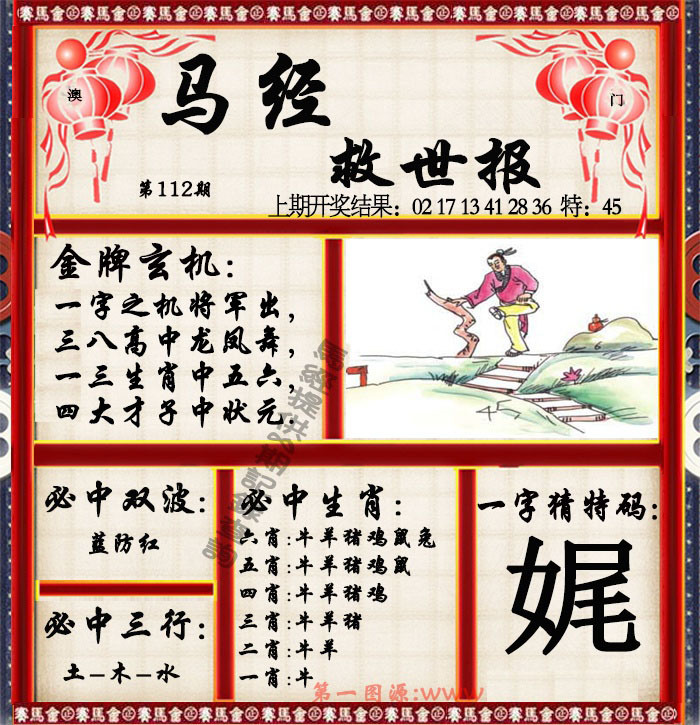 賽馬會 賽馬會 賽馬會 賽馬會 賽馬會 賽馬會 賽馬會 賽馬會
澳
门
马经
救世报
第112期
上期开奖结果：02 17 13 41 28 36 特：45
金牌玄机：
一字之机将军出，
三八高中龙凤舞，
一三生肖中五六，
四大才子中状元.
45
必中双波：
蓝防红
必中三行：
土-木-水
必中生肖：
六肖:牛羊猪鸡鼠兔
五肖:牛羊猪鸡鼠
四肖:牛羊猪鸡
三肖:牛羊猪
二肖:牛羊
一肖:牛
一字猜特码：
娓
第一图源:www